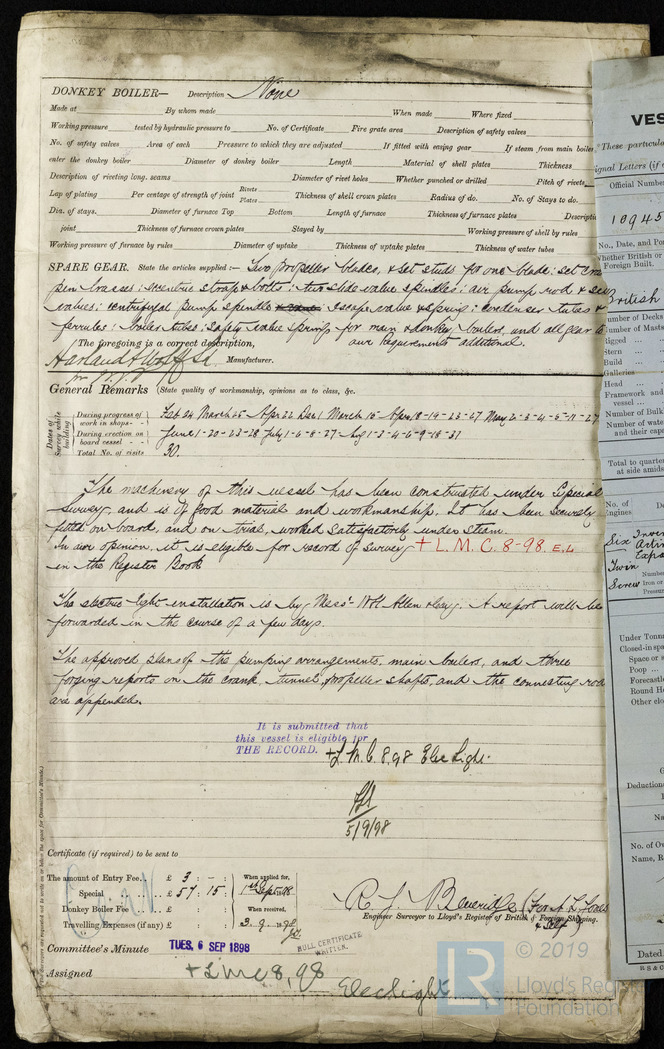 DONKEY BOILER— Description None
Made at By whom made When made Where fixed
Working pressure tested by hydraulic pressure to No. of Certificate Fire grate area Description of safety valves
No. of safety valves Area of each Pressure to which they are adjusted If fitted with easing gear If steam from main boilers
enter the donkey boiler Diameter of donkey boiler Length Material of shell plates Thickness
Description of riveting long. seams Diameter of rivet holes Whether punched or drilled Pitch of rivets
Lap of plating Per centage of strength of joint Rivets Plates Thickness of shell crown plates Radius of do. No. of Stays to do.
Dia. of stays. Diameter of furnace Top Bottom Length of furnace Thickness of furnace plates Descripti
joint Thickness of furnace crown plates Stayed by Working pressure of shell by rules
Working pressure of furnace by rules Diameter of uptake Thickness of uptake plates Thickness of water tubes
SPARE GEAR. State the articles supplied:— Two propeller blades, & set studs for one blade: set cra
pin brasses: eccentric strap & bolts: two slide valve spindles: air pump rod &
valves: centrifugal pump spindle escape valve & spring: condenser tubes &
ferrules: boiler tubes: safety valve springs for main & donkey boilers, and all gear
The foregoing is a correct description, our requirements additional.
Harland & Wolff Ld Manufacturer.
General Remarks (State quality of workmanship, opinions as to class, &c.
Dates of Survey while building
During progress of work in shops - -
During erection on board vessel - - June 1-20-23-28 July 1-6-8-27- Aug 1-3-4-6-9-18-31
Total No. of visits 30.
The machinery of this vessel has been constructed under Special
Survey, and is of good material and workmanship. It has been securely
fitted on board, and on trial, worked satisfactorily under steam.
In our opinion, it is eligible for record of survey + L.M.C. 8-98. E.L.
in the Register Book
The electric light installation is by Messrs W.H. Allen & Coy. A report will be
forwarded in the course of a few days.
The approved plans of the pumping arrangements, main boilers, and three
forging reports on the crank, tunnel, propeller shafts, and the connecting rods
are appended.
It is submitted that
this vessel is eligible for
THE RECORD. + L.M.C. 8.98 Elec Light.
5/9/98
Certificate (if required) to be sent to
The amount of Entry Fee.. £ 3 : - : When applied for,
Special £ 57 : 15 : 1st Sept 98
Donkey Boiler Fee £ : : When received,
Travelling Expenses (if any) £ : : 3.9.1898
R. J. Beveridge
Engineer Surveyor to Lloyd's Register of British & Foreign Shipping.
Committee's Minute TUES, 6 SEP 1898
HULL CERTIFICATE
WRITTEN.
Assigned + LMC 8,98
Elec light
VES
These particula
ignal Letters (if
Official Numbe
10945
No., Date, and Po
Whether British or
Foreign Built.
British
umber of Decks
umber of Masts
Rigged
Stern
Build
Galleries
Head
Framework and
vessel
Number of Bulk
Number of wate
and their capa
Total to quarte
at side amids
No. of
Engines
Six
Twin
Screw
Under Tonna
Closed-in spa
Space or s
Poop
Forecastle
Round Ho
Other clo
Deduction
No. of Ow
Name, R
Dated
© 2019
LR
Lloyd's Reg
Foundation